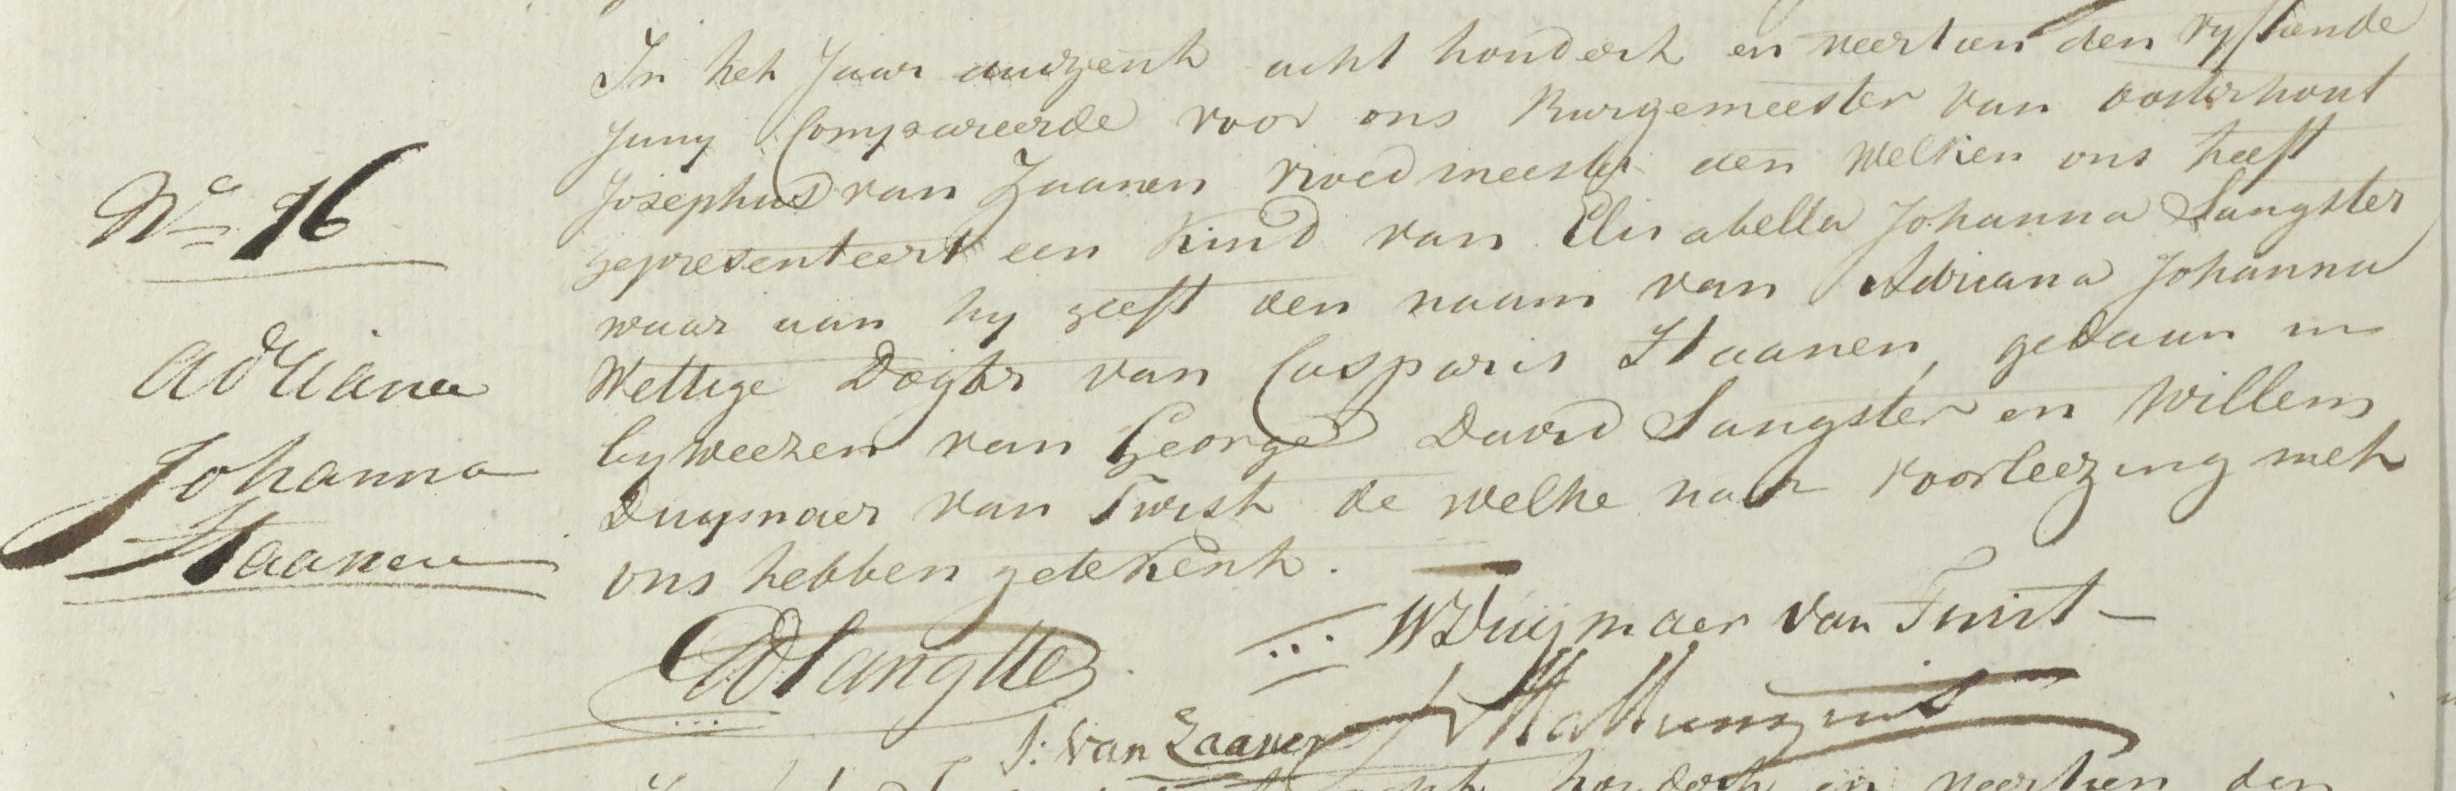 In het Jaar duizent acht hondert en veertien den vyftiende
Juny Compareerde voor ons Burgemeester van oosterhout
Josephus van Zaanen vroedmeester den welken ons heeft
gepresenteert een Kind van Elisabella Johanna Sangster
waar aan hy geeft den naam van Adriana Johanna
Wettige Dogter van Casparis Haanen, gedaan in
byweezen van George David Sangster en Willem
Duymaer van Twist de welke naar voorleezing met
ons hebben getekent.
No 76
Adriana
Johanna
Haanen
GD Sangster
W Duijmaer van Twist
J: van Zaanen
hondert en veertien den